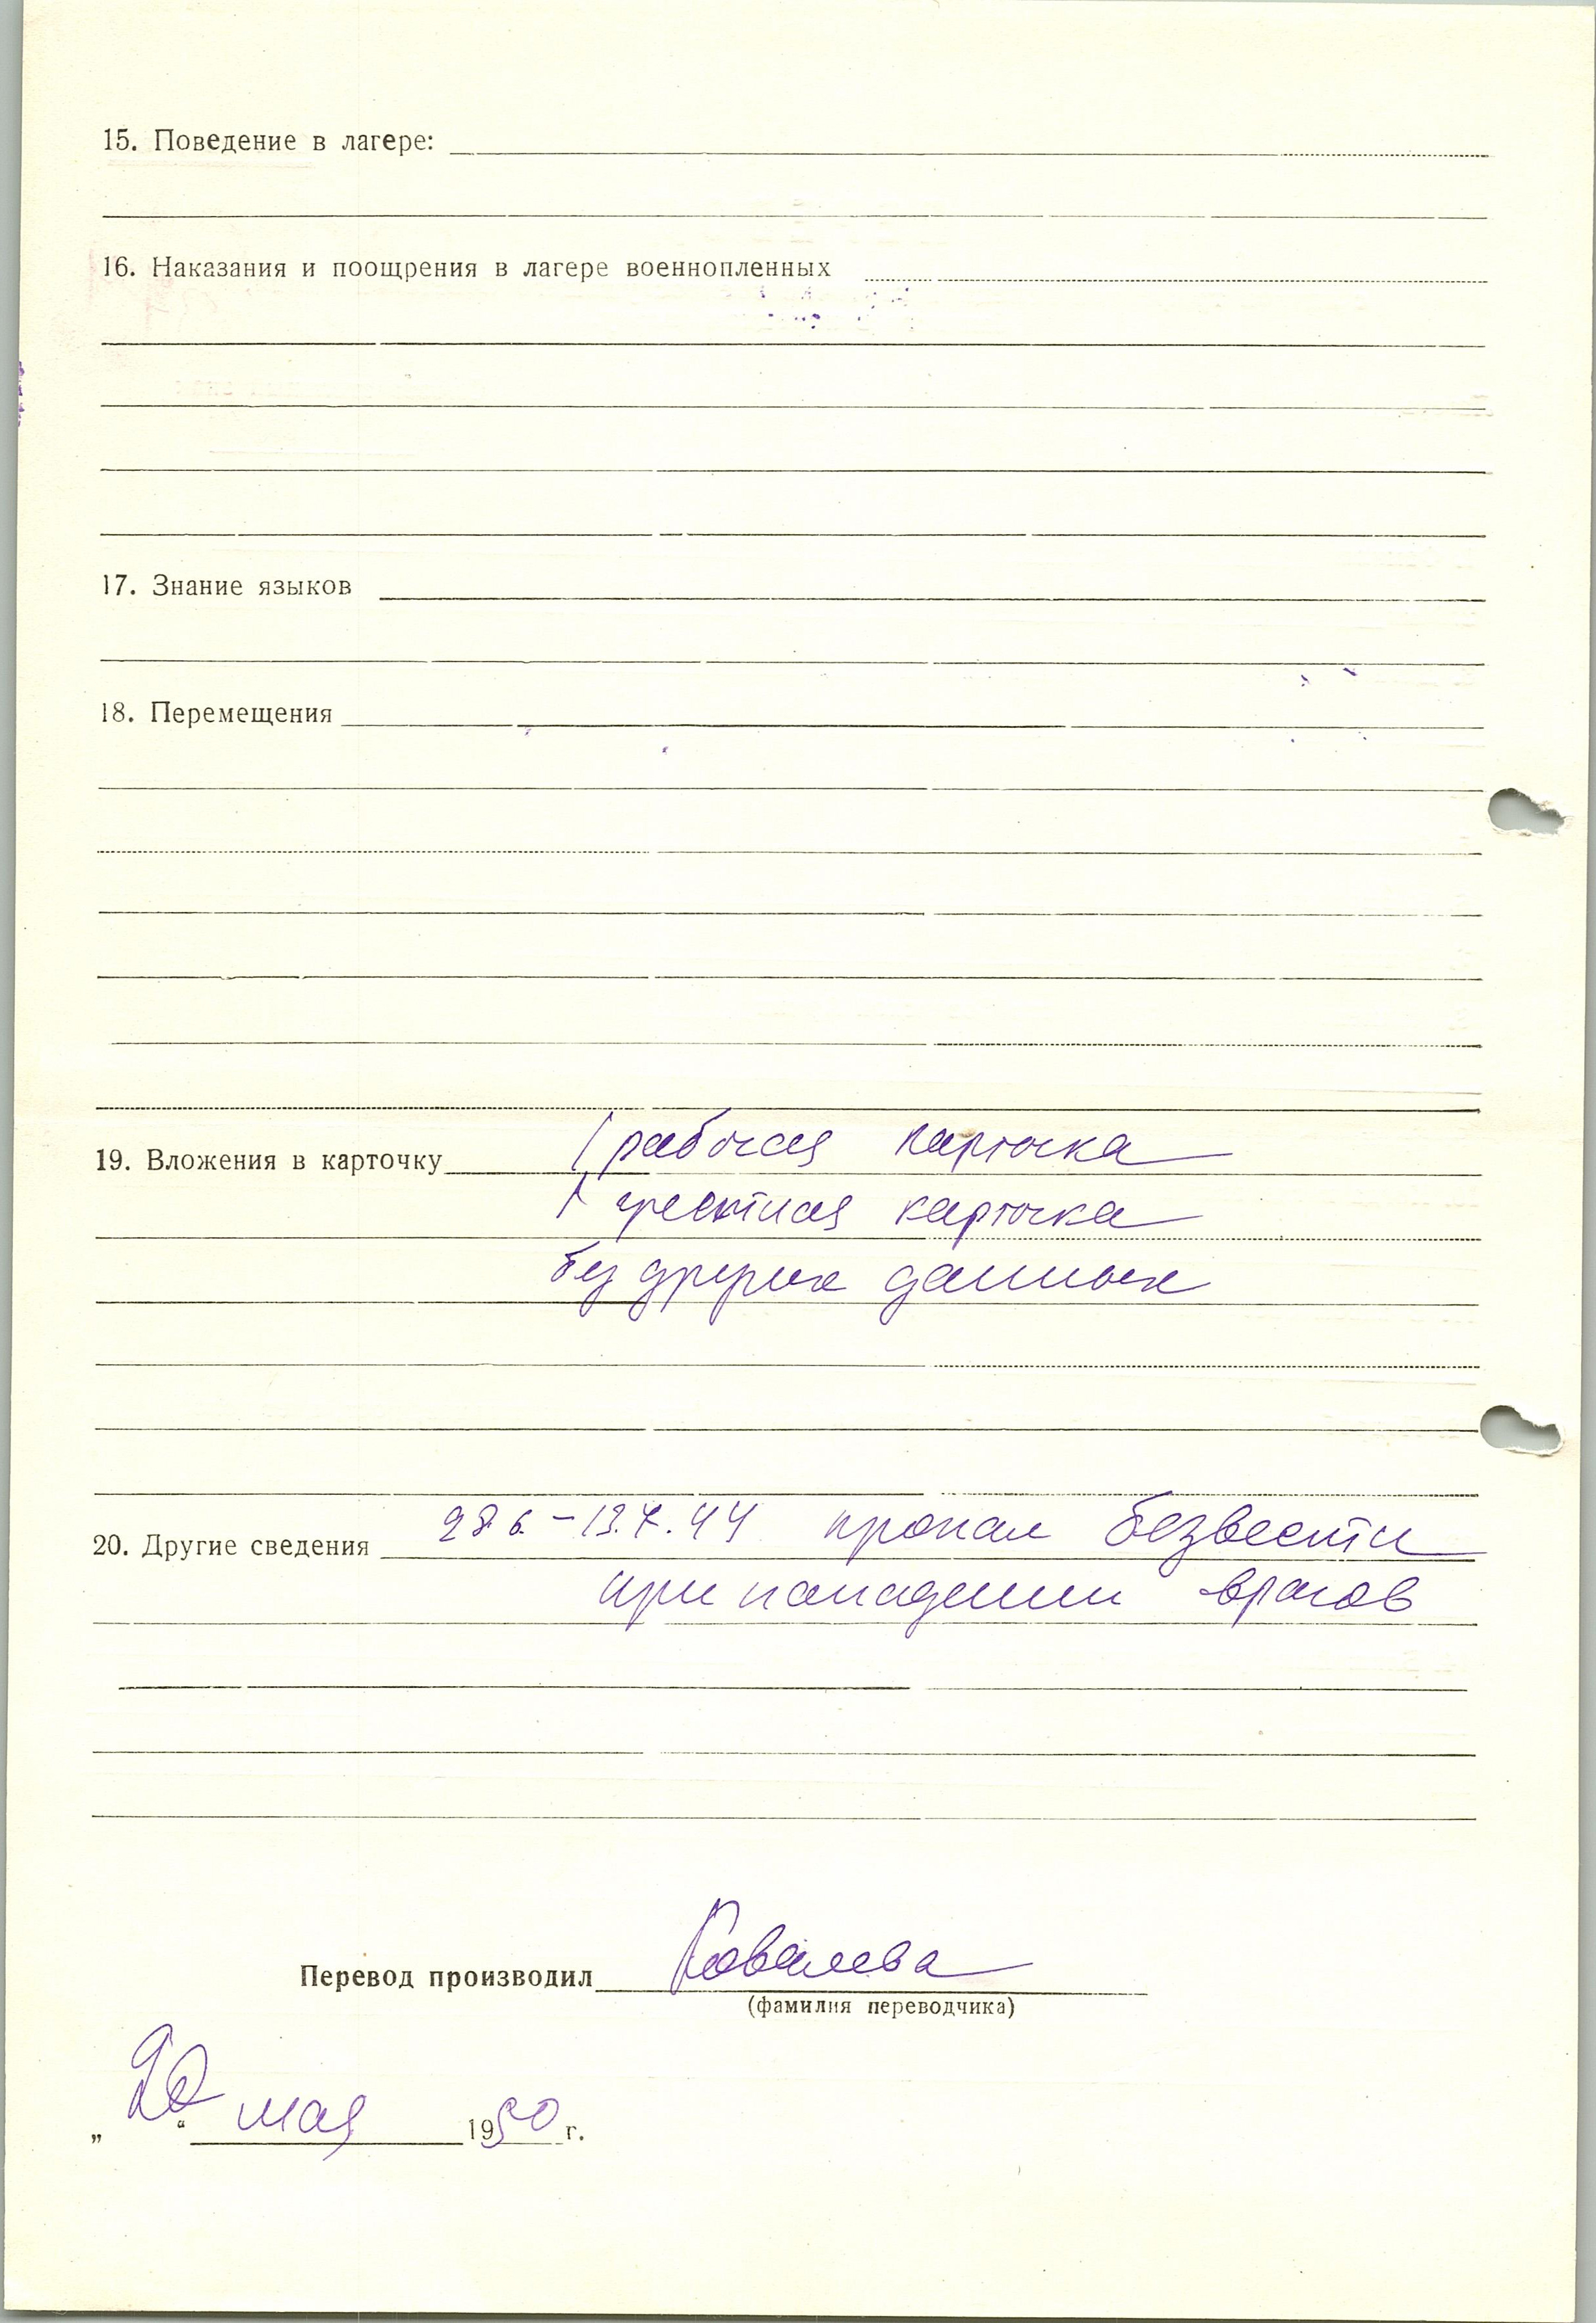 15. Поведение в лагере:
16. Наказания и поощрения в лагере военнопленных
17. Знание языков
18. Перемещения
19. Вложения в карточку 1 рабочая карточка
1 карточка
без других данных
20. Другие сведения 28.6.–13.7.44 пропал безвести
при нападении врагов
Перевод производил Ковалева
(фамилия переводчика)
„20“ мая 1950 г.